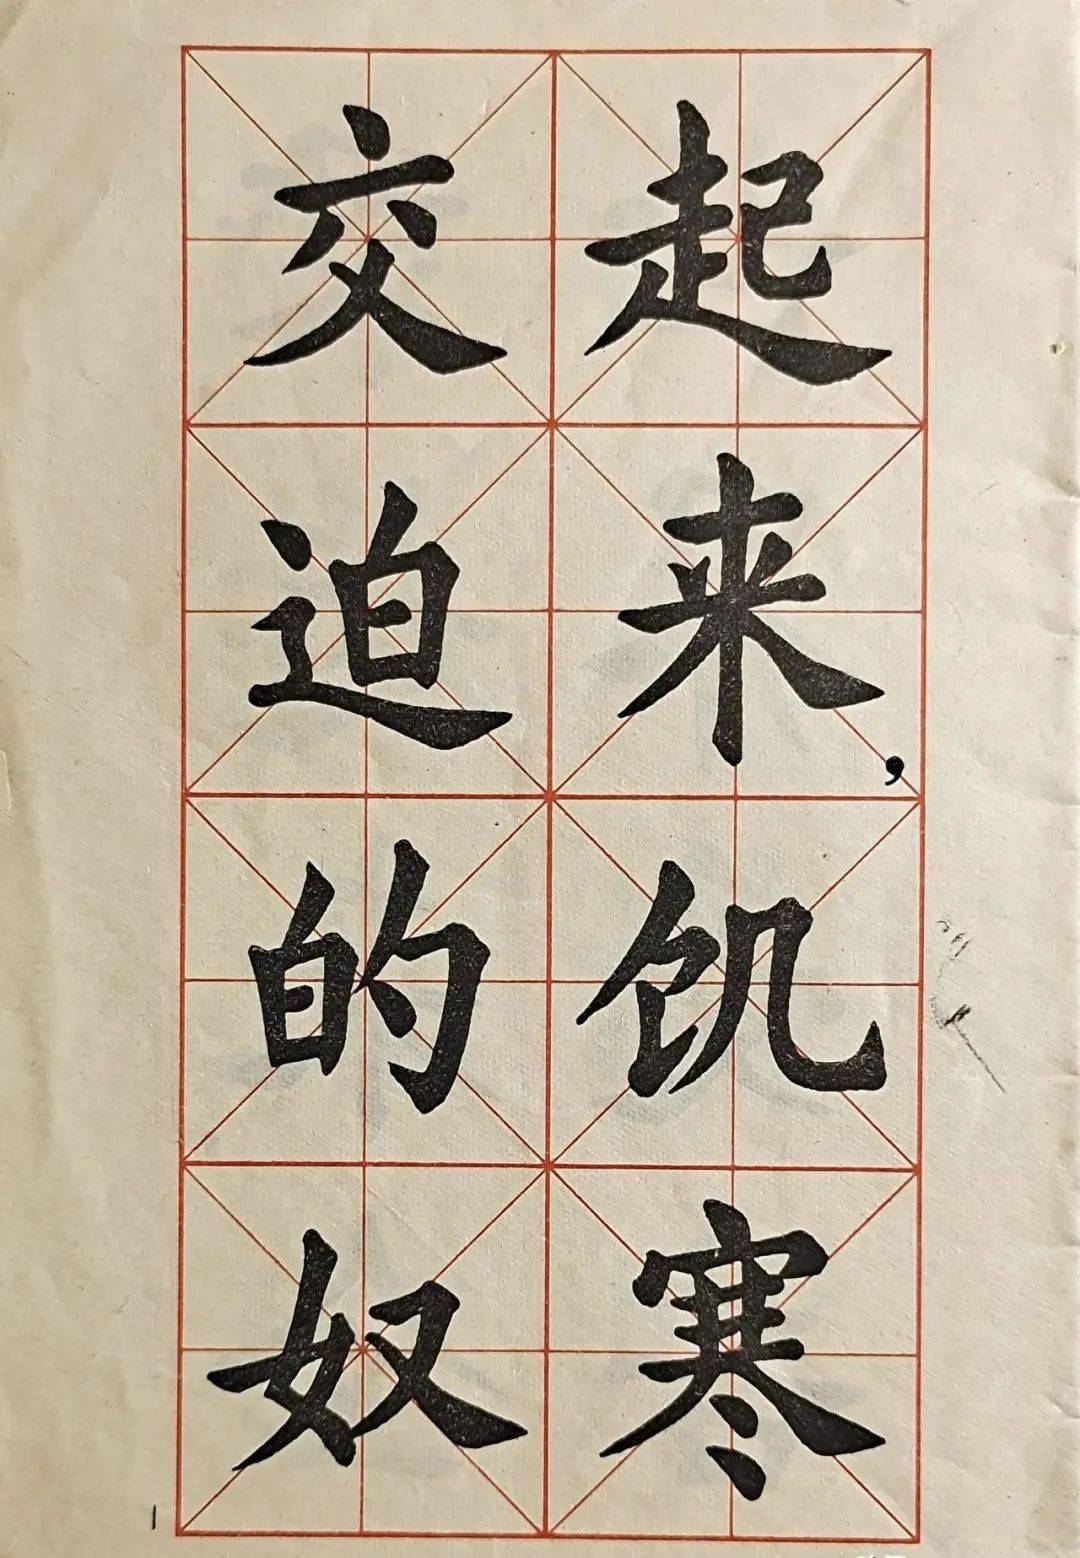 起来,饥寒
交迫的奴
1